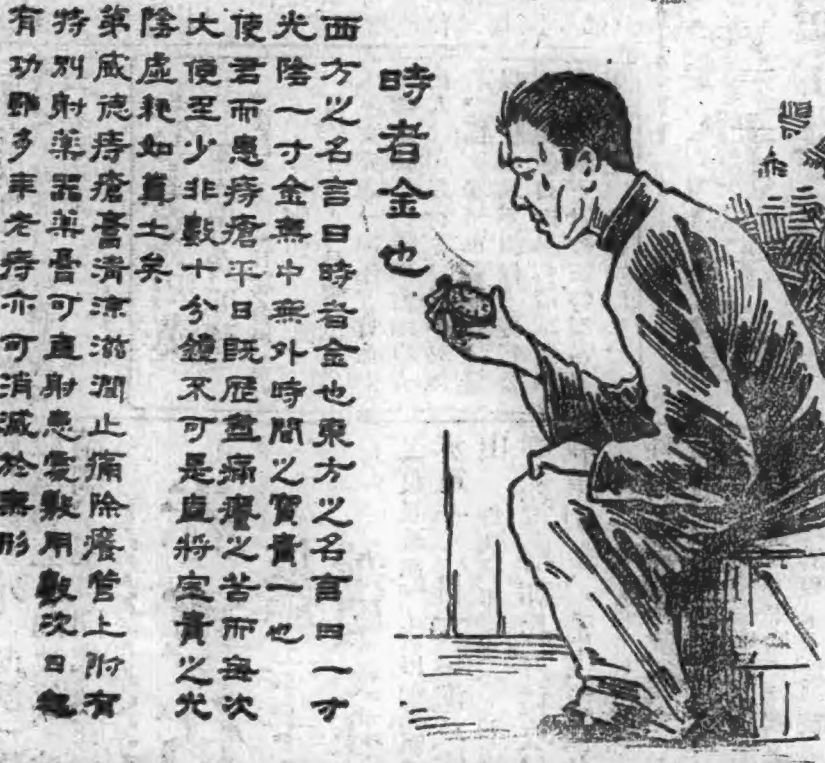 時者金也
西方之名言曰時者金也東方之名言曰一寸
光陰一寸金無中無外時間之寶貴一也
使君而患痔瘡平日既歷盡痛癢之苦而每次
大便至少非數十分鐘不可是直將寶貴之光
陰虛耗如糞土矣
第威德痔瘡膏清涼滋潤止痛除癢管上附有
特別射藥器藥膏可直射患處敷用數次日起
有功即多年老痔亦可消滅於無形